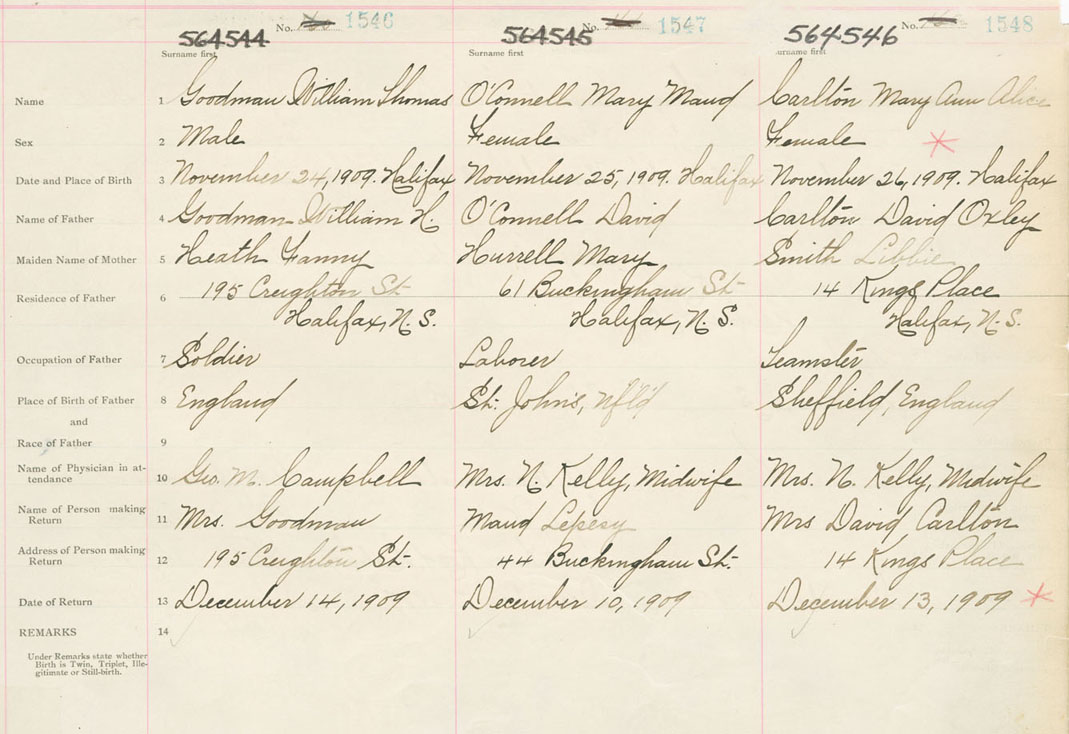 No. 1546 No. 1547 No. 1548
564544 564545 564546
Surname first Surname first Surname first
Name 1 Goodman William Thomas O'Connell Mary Maud Carlton Mary Ann Alice
Sex 2 Male Female Female *
Date and Place of Birth 3 November 24, 1909. Halifax November 25, 1909. Halifax November 26, 1909. Halifax
Name of Father 4 Goodman William H. O'Connell David Carlton David Oxley
Maiden Name of Mother 5 Heath Fanny Hurrell Mary Smith Libbie
Residence of Father 6 195 Creighton St. 61 Buckingham St. 14 Kings Place
Halifax, N. S. Halifax, N. S. Halifax, N. S.
Occupation of Father 7 Soldier Laborer Teamster
Place of Birth of Father 8 England St. John's, Nf'l'd Sheffield, England
and
Race of Father 9
Name of Physician in at-
tendance 10 Geo. M. Campbell Mrs. N. Kelly, Midwife Mrs. N. Kelly, Midwife
Name of Person making
Return 11 Mrs. Goodman Maud Mrs David Carlton
Address of Person making
Return 12 195 Creighton St. 44 Buckingham St. 14 Kings Place
Date of Return 13 December 14, 1909 December 10, 1909 December 13, 1909 *
REMARKS 14
Under Remarks state whether
Birth is Twin, Triplet, Ille-
gitimate or Still-birth.